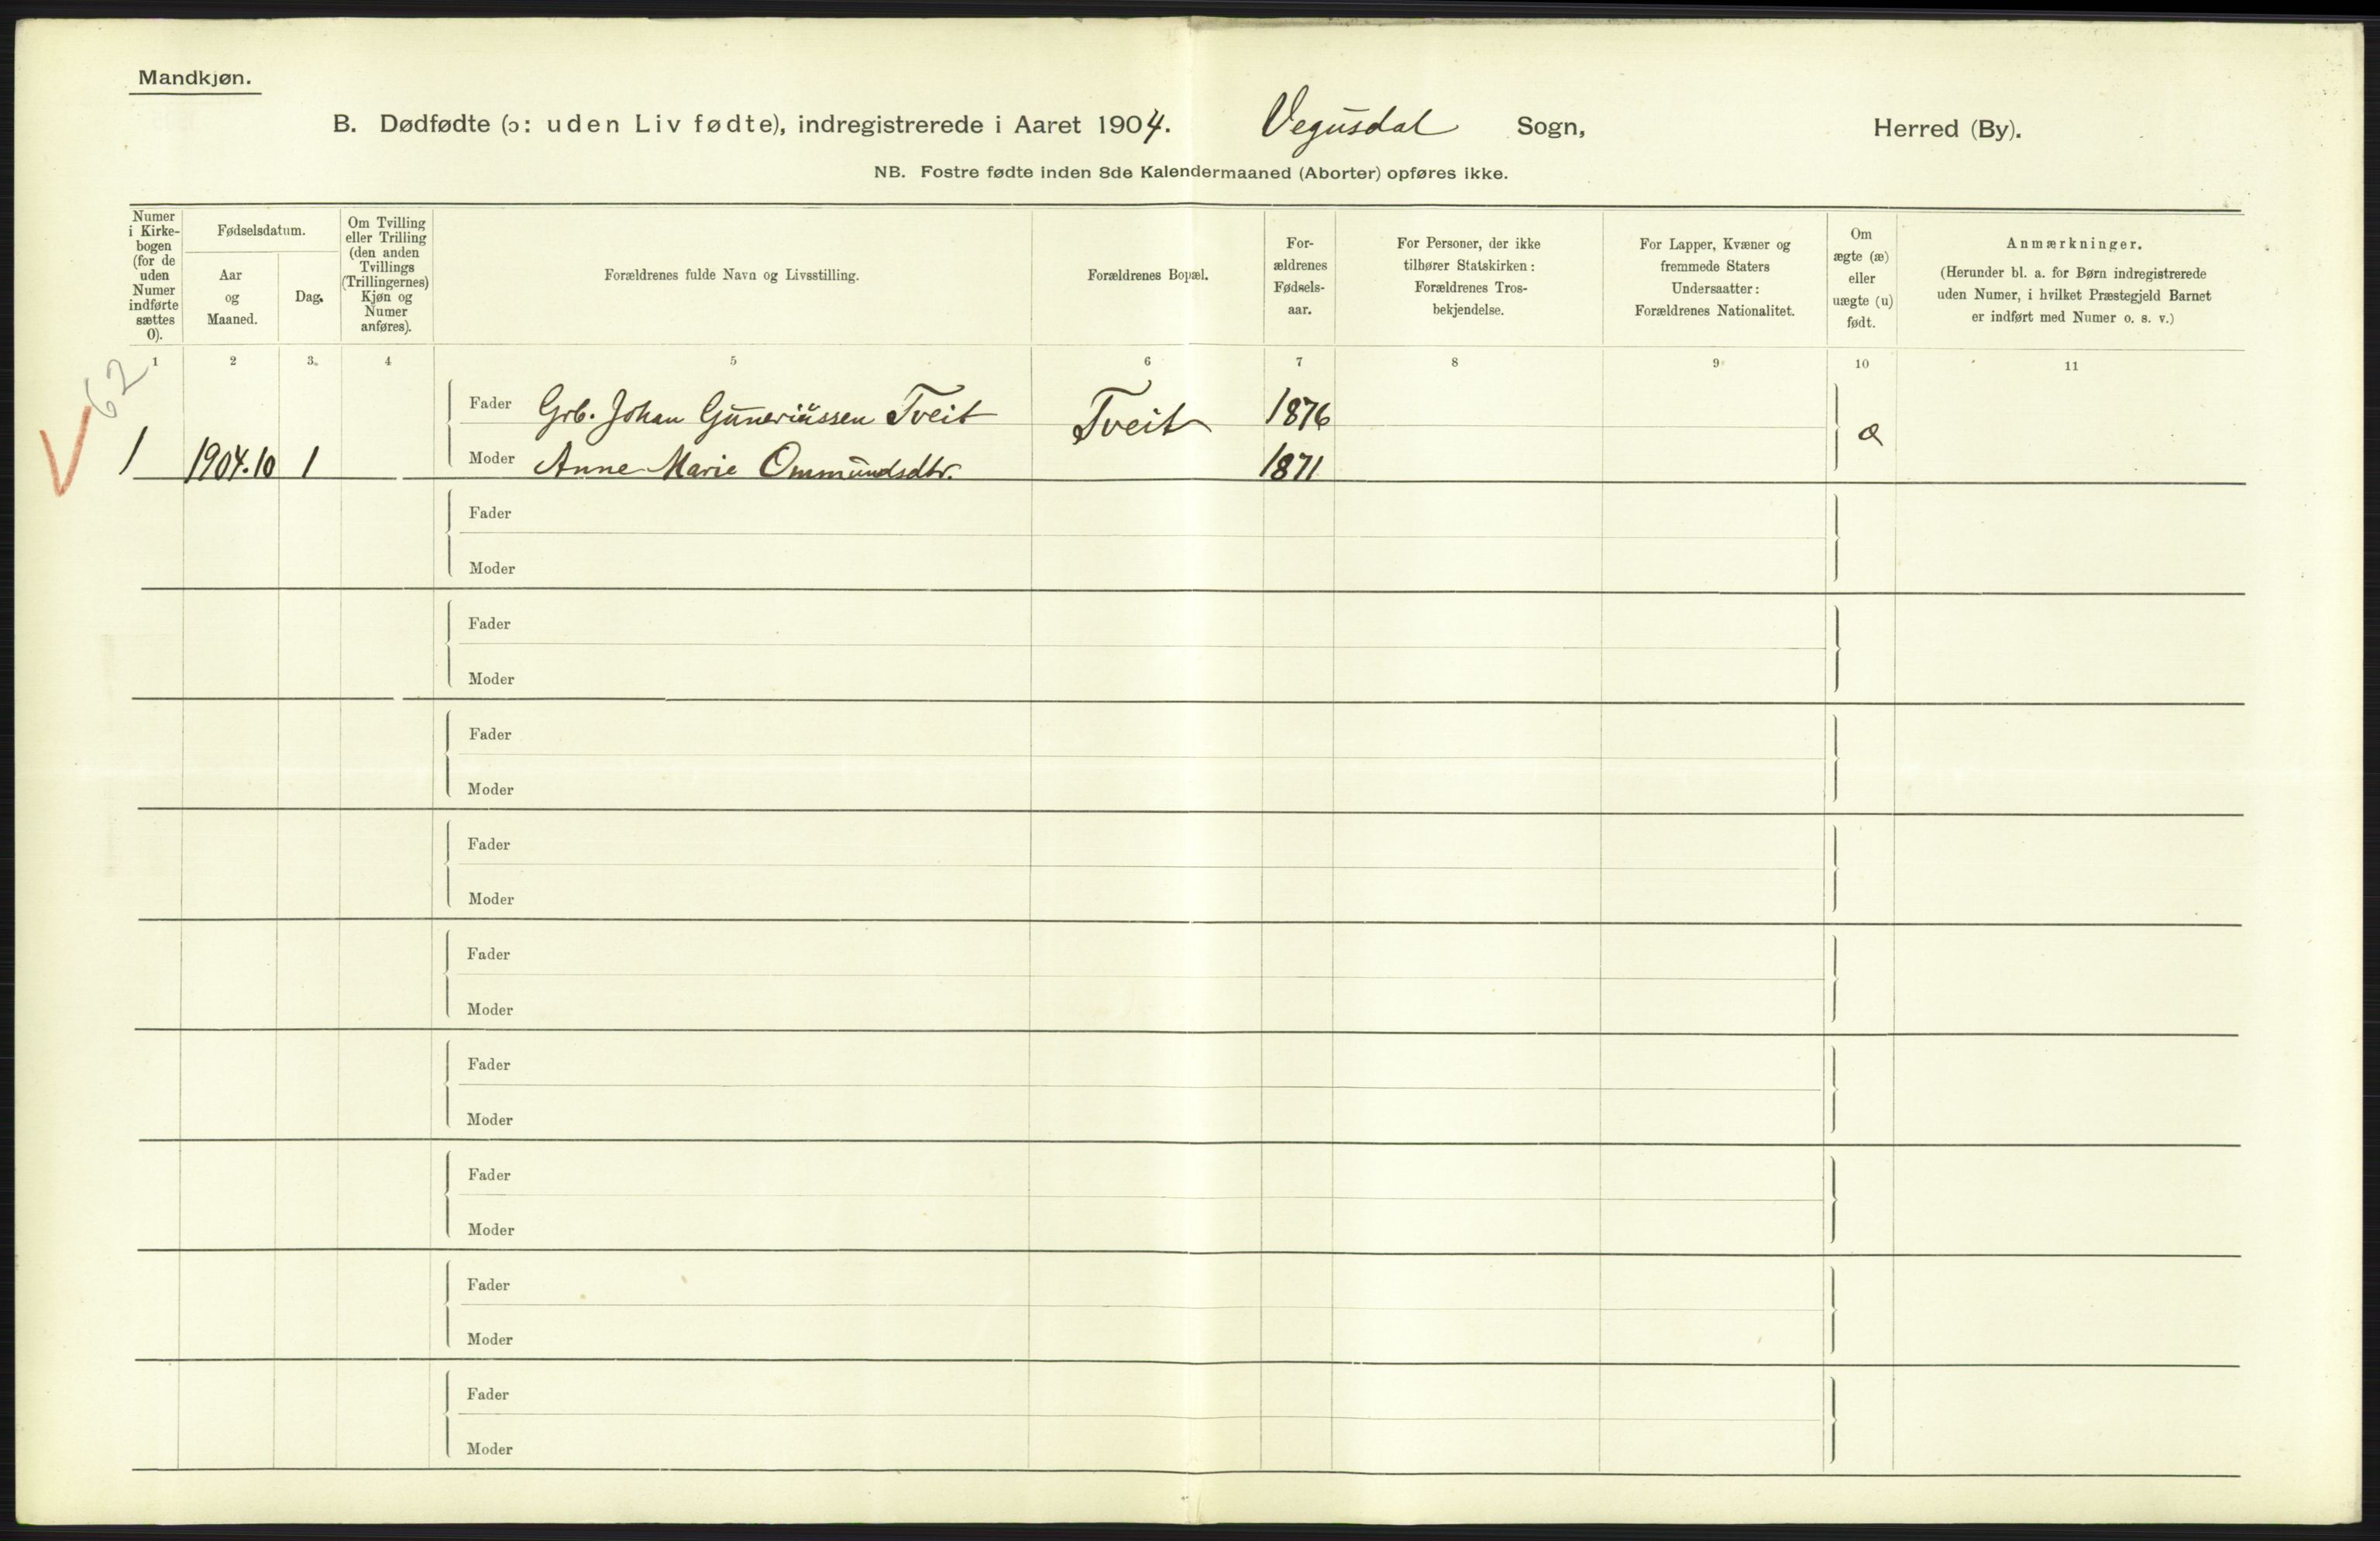 Mandkjøn.
B. Dødfødte (ɔ: uden Liv fødte), indregistrerede i Aaret 1904. Vegusdal Sogn, Herred (By).
NB. Fostre fødte inden 8de Kalendermaaned (Aborter) opføres ikke.
Numer
i Kirke-
bogen
(for de
uden
Numer
indførte
sættes
0).
Fødselsdatum.
Aar
og
Maaned.
Dag.
Om Tvilling
eller Trilling
(den anden
Tvillings
(Trillingernes)
Kjøn og
Numer
anføres).
Forældrenes fulde Navn og Livsstilling.
Forældrenes Bopæl.
For-
ældrenes
Fødsels-
aar.
For Personer, der ikke
tilhører Statskirken:
Forældrenes Tros-
bekjendelse.
For Lapper, Kvæner og
fremmede Staters
Undersaatter:
Forældrenes Nationalitet.
Om
ægte (æ)
eller
uægte (u)
født.
Anmærkninger.
(Herunder bl. a. for Børn indregistrerede
uden Numer, i hvilket Præstegjeld Barnet
er indført med Numer o. s. v.)
1 2 3. 4 5 6 7 8 9 10 11
62
Fader Grb. Johan Guneriussen Tveit Tveit 1876 æ
V 1 1904.10 1 Moder Anne Marie Ommundsdtr. 1871
Fader
Moder
Fader
Moder
Fader
Moder
Fader
Moder
Fader
Moder
Fader
Moder
Fader
Moder
Fader
Moder
Fader
Moder